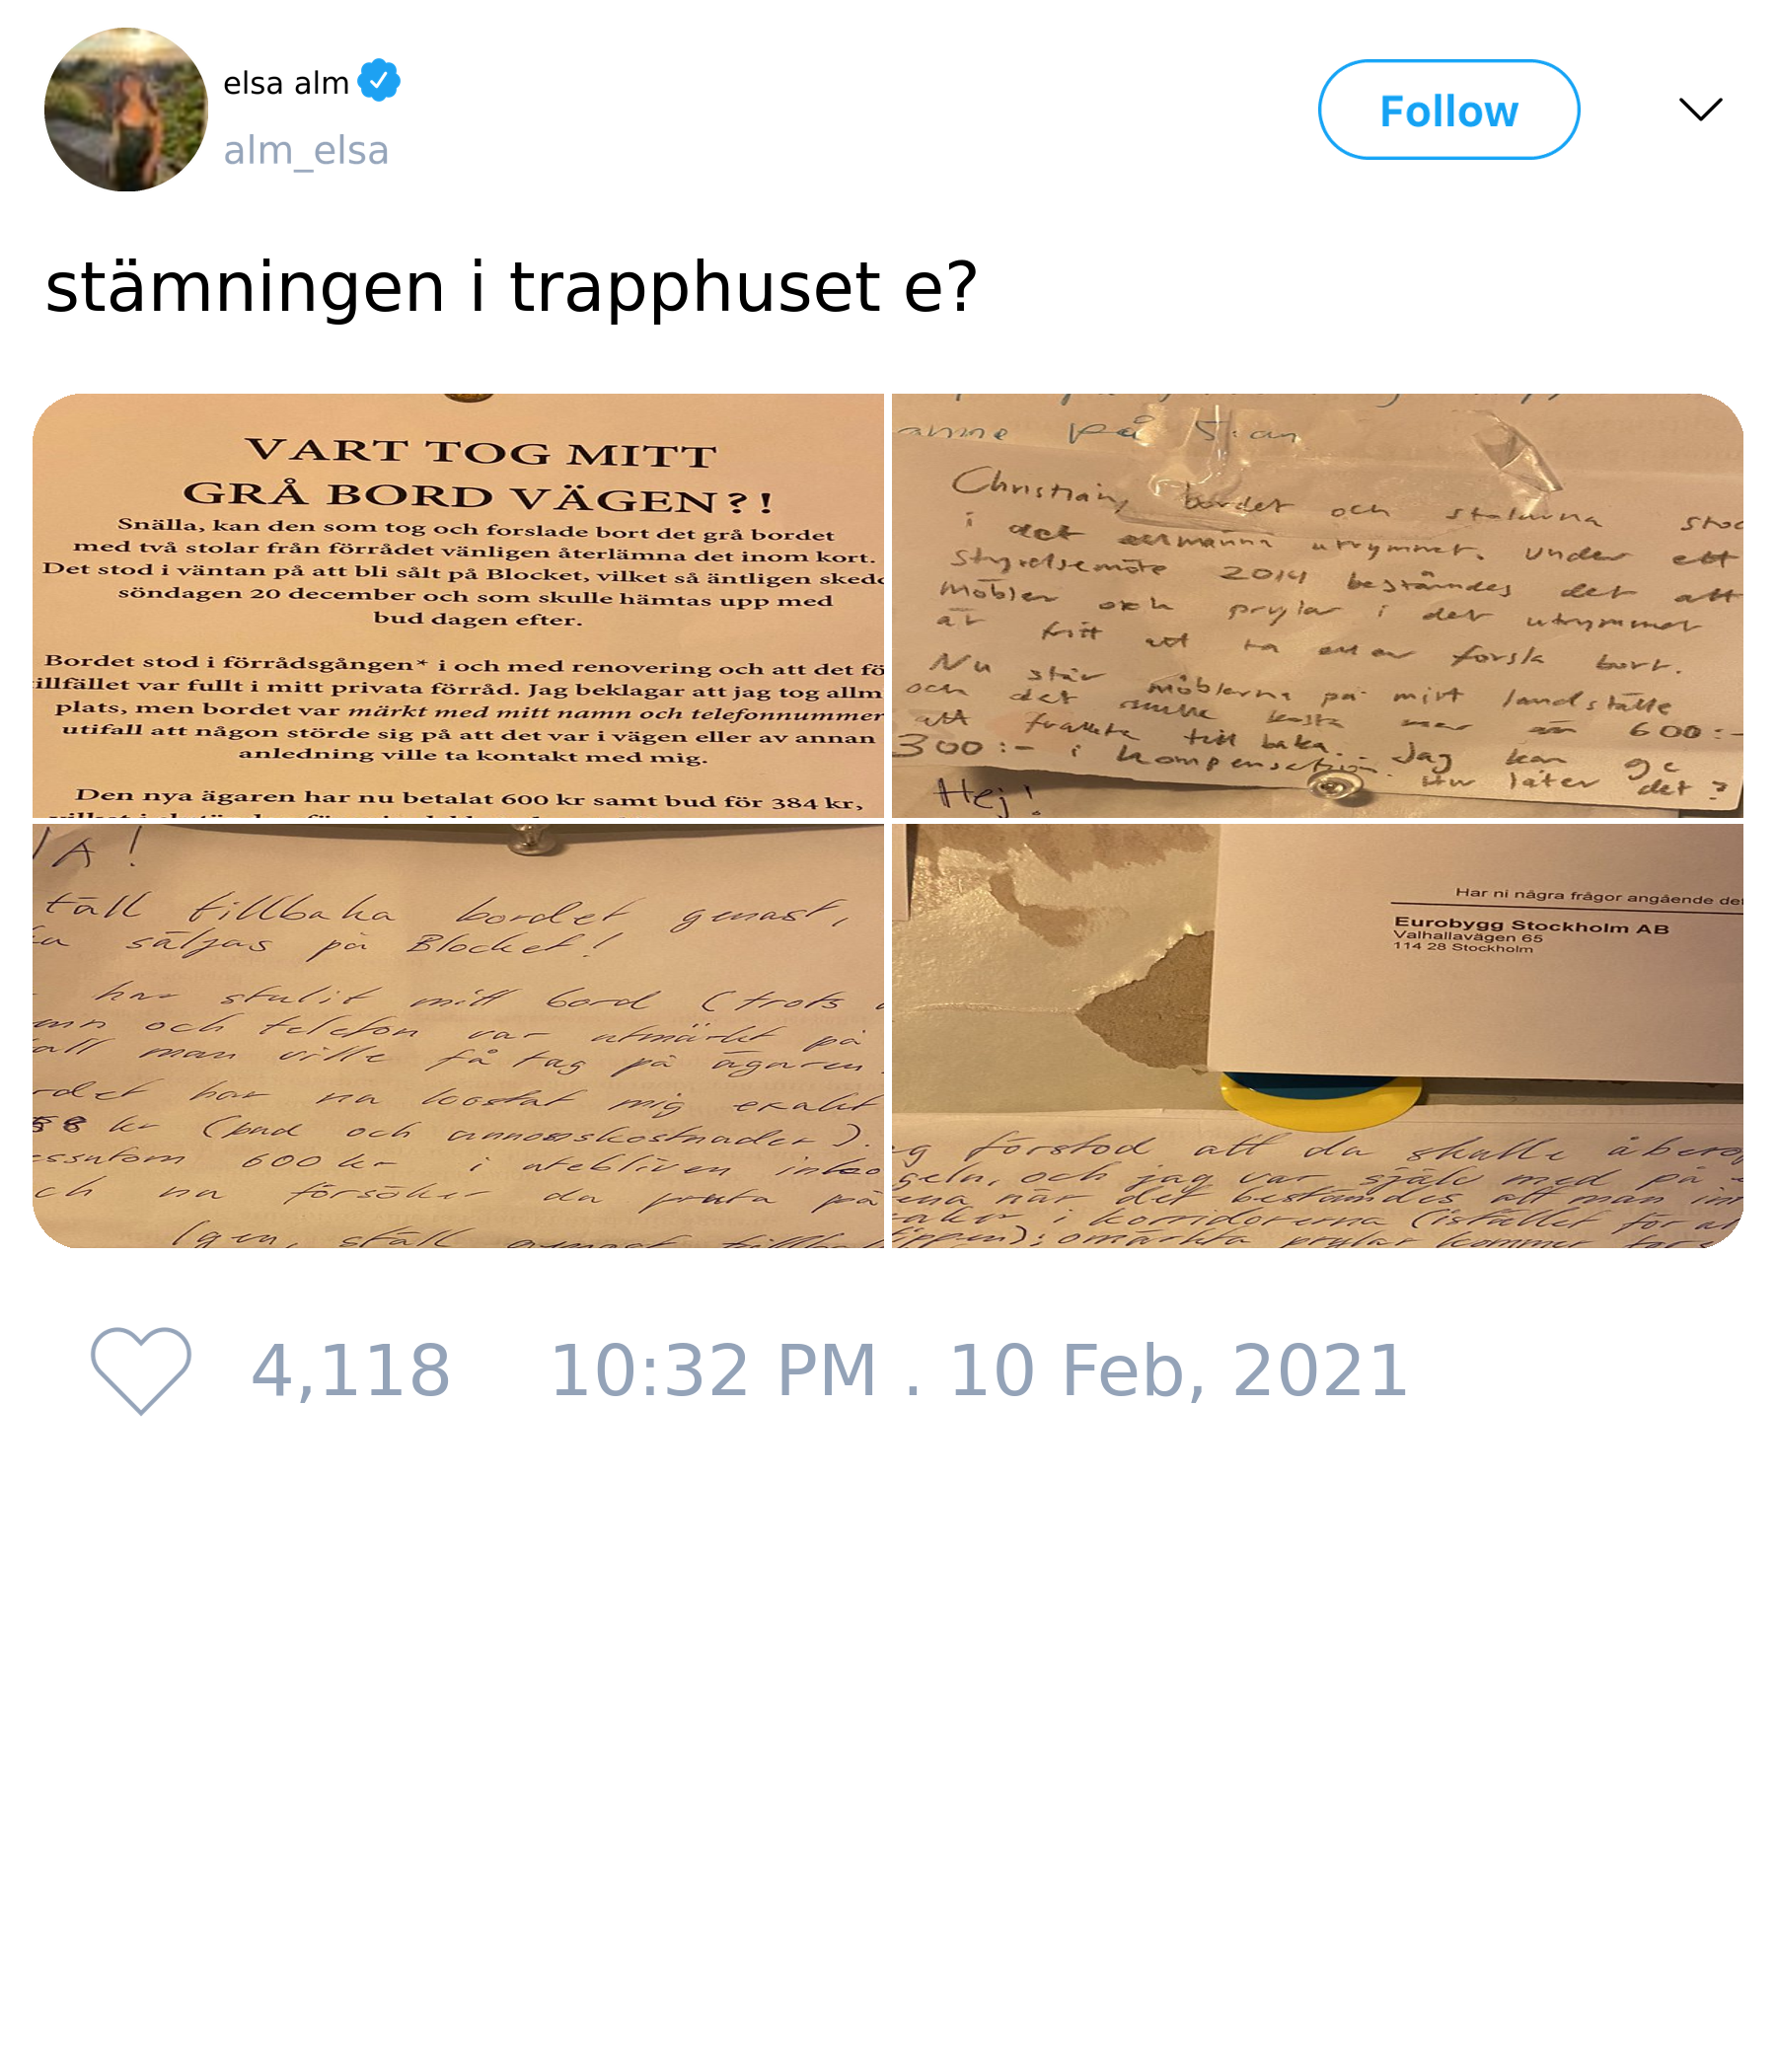 elsa alm
alm_elsa
Follow
stämningen i trapphuset e?
VART TOG MITT
GRÅ BORD VÄGEN?!
Snälla, kan den som tog och forslade bort det grå bordet
med två stolar från förrådet vänligen återlämna det inom kort.
Det stod i väntan på att bli sålt på Blocket, vilket så äntligen skedd
söndagen 20 december och som skulle hämtas upp med
bud dagen efter.
Bordet stod i förrådsgången* i och med renovering och att det fö
illfället var fullt i mitt privata förråd. Jag beklagar att jag tog allm
plats, men bordet var märkt med mitt namn och telefonnummer
utifall att någon störde sig på att det var i vägen eller av annan
anledning ville ta kontakt med mig.
Den nya ägaren har nu betalat 600 kr samt bud för 384 kr,
på 5:an
Christian, bordet och stolarna stod
i det allmänna utrymmet. Under ett
styrelsemöte 2014 bestämdes det att
möbler och prylar i det utrymmet
är fritt att ta eller forsla bort.
Nu står möblerna på mitt landställe
och det skulle kosta mer än 600:-
att frakta tillbaka. Jag kan ge
300:- i kompensation. Hur låter det?
Hej!
JA!
täll tillbaka bordet genast,
säljas på Blocket!
har stulit mitt bord (trots
mn och telefon var utmärkt på
all man ville få tag på ägaren
rdet har nu kostat mig exakt
88 kr (bud och annonskostnader).
essutom 600 kr i utebliven
ch nu försöker du pruta på
Igen, ställ genast
Har ni några frågor angående det
Eurobygg Stockholm AB
Valhallavägen 65
114 28 Stockholm
g förstod att du skulle åbero
geln, och jag var själv med på
ena när det bestämdes att man in
aker i korridorerna (istället för
omärkta prylar kommer
4,118 10:32 PM . 10 Feb, 2021